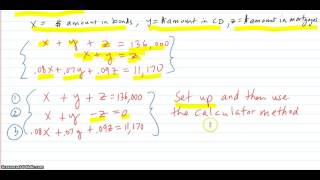 x = $ amount in bonds, y = $ amount in CD, z = $ amount in mortgages
x + y + z = 136,000
x + y = z
.08x + .07y + .09z = 11,170
① x + y + z = 136,000
② x + y - z = 0
③ .08x + .07y + .09z = 11,170
Set up and then use
the calculator method